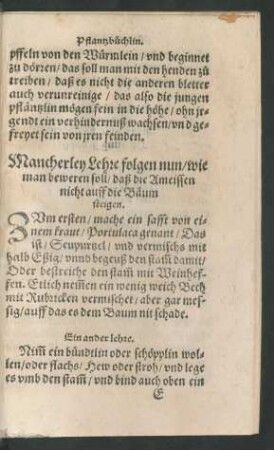 Pflantzbüchlin.
pffeln von den Würmlein / vnd beginnet
zů dörren / das soll man mit den henden zů
treiben / daß es nicht die anderen bletter
auch verunreinige / das also die jungen
pflåntzlin mögen fein in die höhe / ohn jr-
gendt ein verhindernuß wachsen / vnd ge-
freyet sein von jren feinden.
Mancherley Lehre folgen nun / wie
man beweren soll / daß die Ameissen
nicht auff die Bäum
steigen.
ZVm ersten / mache ein safft von ei-
nem kraut / Portulaca genant / Das
ist / Seupurtzel / vnd vermischs mit
halb Eßig / vnnd begeuß den stam̃ damit /
Oder bestreiche den stam̃ mit Weinhef-
fen. Etlich nem̃en ein wenig weich Bech
mit Rubricken vermischet / aber gar mes-
sig / auff das es dem Baum nit schade.
Ein ander lehre.
Nim̃ ein bündtlin oder schöpplin wol-
len / oder flachs / Hew oder stroh / vnd lege
es vmb den stam̃ / vnd bind auch oben ein
E